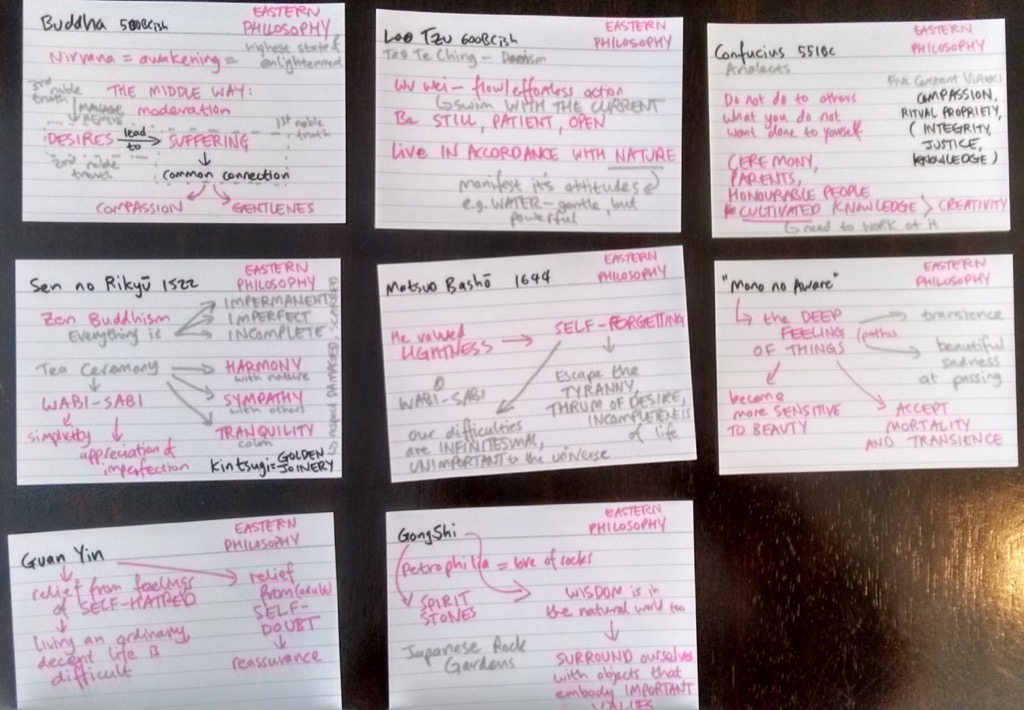 Buddha 500BCish
EASTERN
PHILOSOPHY
Nirvana = awakening = highest state of
enlightenment
3rd noble
truth
THE MIDDLE WAY:
MANAGE
REMOVE
moderation
1st noble
truth
DESIRES lead
to SUFFERING
2nd noble
truth
common connection
COMPASSION
GENTLENES
Lao Tzu 600BCish
EASTERN
PHILOSOPHY
Tao Te Ching - Daoism
WU wei - flow/effortless action
SWIM WITH THE CURRENT
Be STILL, PATIENT, OPEN
Live IN ACCORDANCE WITH NATURE
manifest it's attitudes
e.g. WATER - gentle, but
powerful
Confucius 551BC
EASTERN
PHILOSOPHY
Analects
Five Constant Virtues
COMPASSION,
RITUAL PROPRIETY,
( INTEGRITY,
JUSTICE,
KNOWLEDGE)
Do not do to others
what you do not
want done to yourself
CEREMONY,
PARENTS,
HONOURABLE PEOPLE
CULTIVATED KNOWLEDGE > CREATIVITY
need to WORK at it
Sen no Rikyū 1522
EASTERN
PHILOSOPHY
Zen Buddhism
Everything is
IMPERMANENT
IMPERFECT
INCOMPLETE
Tea Ceremony
HARMONY
with nature
WABI-SABI
SYMPATHY
with others
simplicity
TRANQUILITY
calm
appreciation of
imperfection
Kintsugi = GOLDEN
JOINERY
respect DAMAGED, SCARRED
Matsuo Bashō 1644
EASTERN
PHILOSOPHY
He valued
LIGHTNESS
SELF-FORGETTING
WABI-SABI
Escape the
TYRANNY,
THRUM OF DESIRE,
INCOMPLETENESS
of life
our difficulties
are INFINITESIMAL,
UNIMPORTANT to the universe
"Mono no Aware"
EASTERN
PHILOSOPHY
the DEEP
FEELING (pathos
OF THINGS
transience
beautiful
sadness
at passing
become
more SENSITIVE
TO BEAUTY
ACCEPT
MORTALITY
AND TRANSIENCE
Guan Yin
EASTERN
PHILOSOPHY
relief from feelings
of SELF-HATRED
living an ordinary,
decent life is
difficult
relief
from (acute)
SELF-
DOUBT
reassurance
GongShi
EASTERN
PHILOSOPHY
petrophilia = love of rocks
SPIRIT
STONES
WISDOM is in
the natural world too
Japanese Rock
Gardens
SURROUND ourselves
with objects that
embody IMPORTANT
VALUES